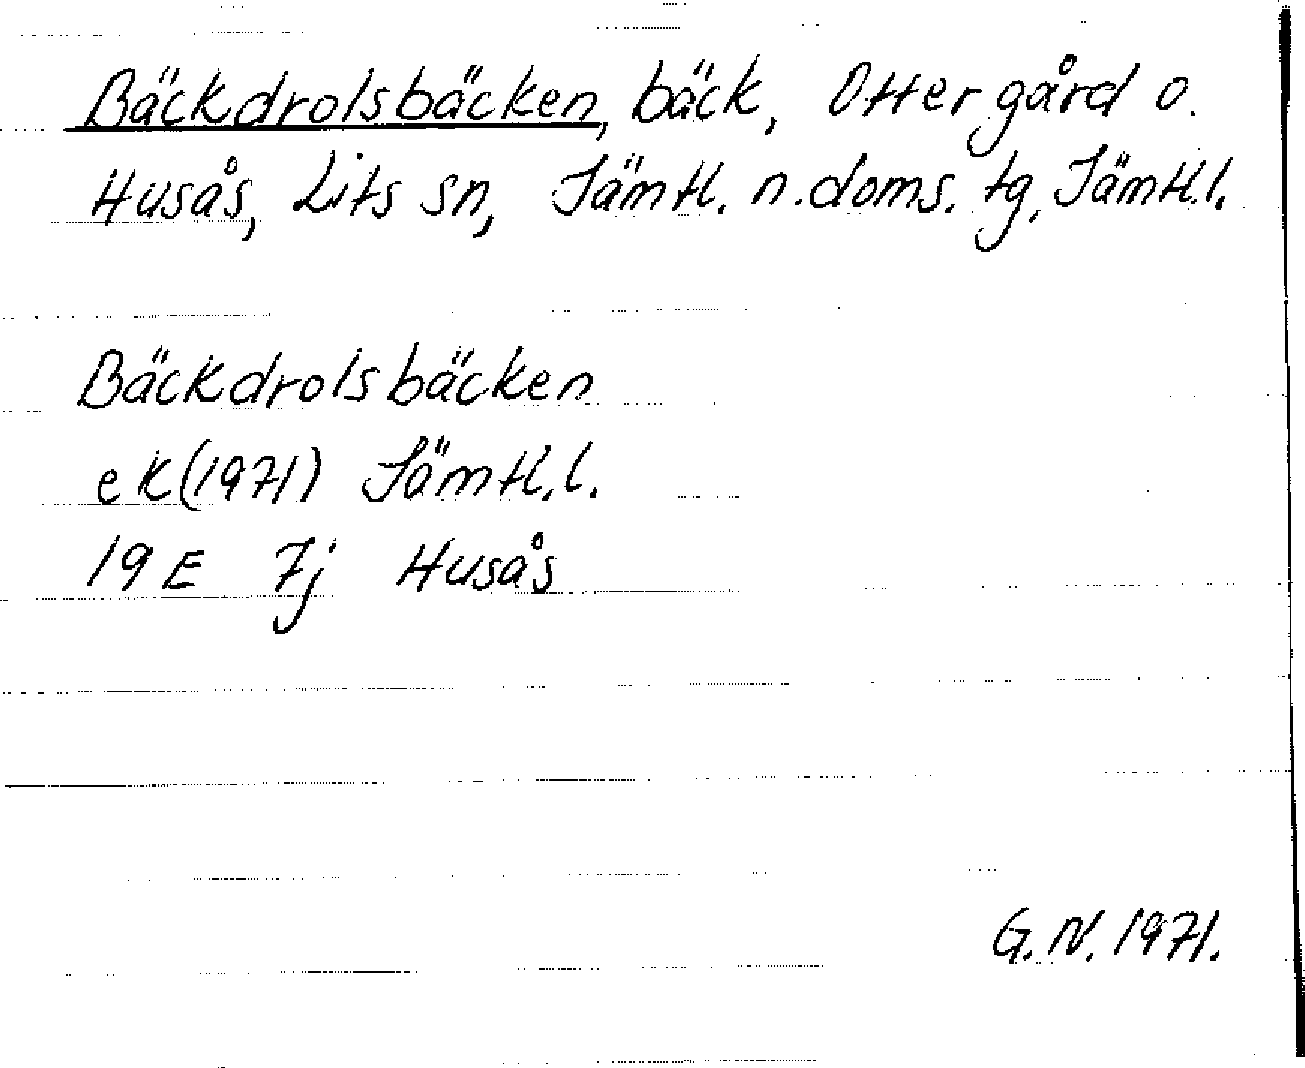 Bäckdrolsbäcken, bäck, Ottergård o.
Husås, Lits sn, Jämtl. n. doms. tg, Jämtl.l.
Bäckdrolsbäcken
ek(1971) Jämtl.l.
19E 7j Husås
G.N. 1971.